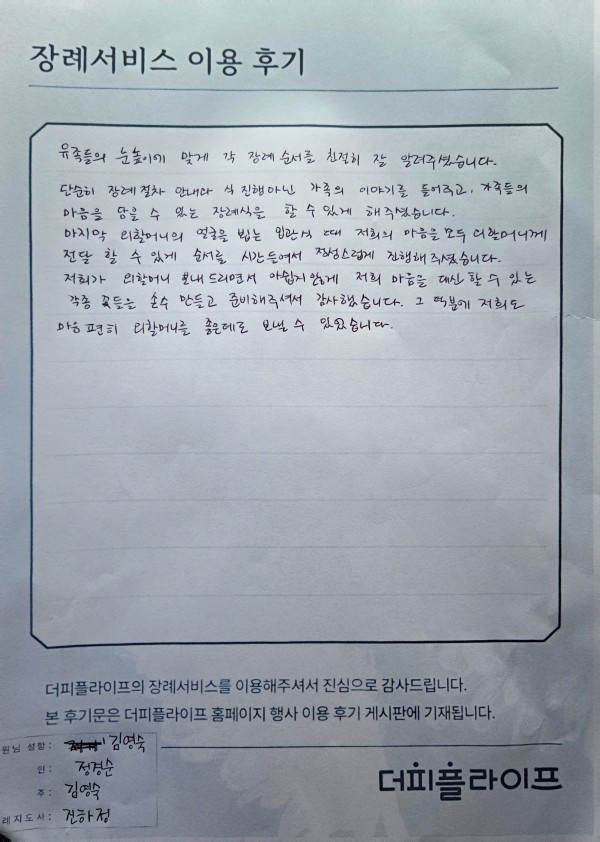 장례서비스 이용 후기
유족들의 눈높이에 맞게 각 장례 순서를 친절히 잘 알려주셨습니다.
단순히 장례 절차 안내와 식 진행아닌 가족의 이야기를 들어주고, 가족들의
마음을 담을 수 있는 장례식을 할 수 있게 해주셨습니다.
마지막 외할머니의 얼굴을 뵙는 입관식 때 저희의 마음을 모두 외할머니께
전달 할 수 있게 순서를 시간들여서 정성스럽게 진행해주셨습니다.
저희가 외할머니 보내드리면서 아쉽지않게 저희 마음을 대신할 수 있는
각종 꽃들을 손수 만들고 준비해주셔서 감사했습니다. 그 덕분에 저희도
마음 편히 외할머니를 좋은데로 보낼 수 있었습니다.
더피플라이프의 장례서비스를 이용해주셔서 진심으로 감사드립니다.
본 후기문은 더피플라이프 홈페이지 행사 이용 후기 게시판에 기재됩니다.
원님 성함: 김영숙
인: 정경순
주: 김영숙
레지도사: 전하정
더피플라이프